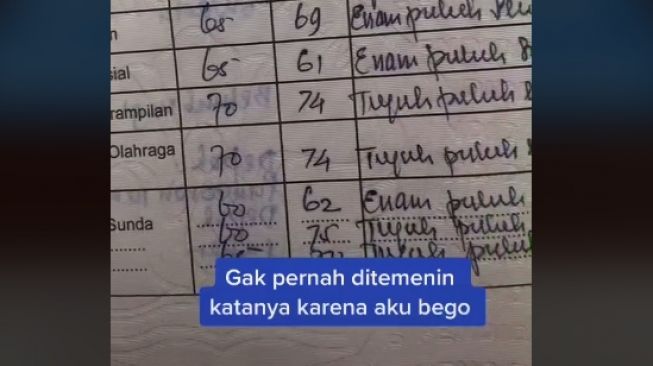 65 69 Enam puluh
sial 65 61 Enam puluh
rampilan 70 74 Tujuh puluh
Olahraga 70 74 Tujuh puluh
60 62 Enam puluh
Sunda 60 75 Tujuh puluh
65 puluh
Gak pernah ditemenin
katanya karena aku bego